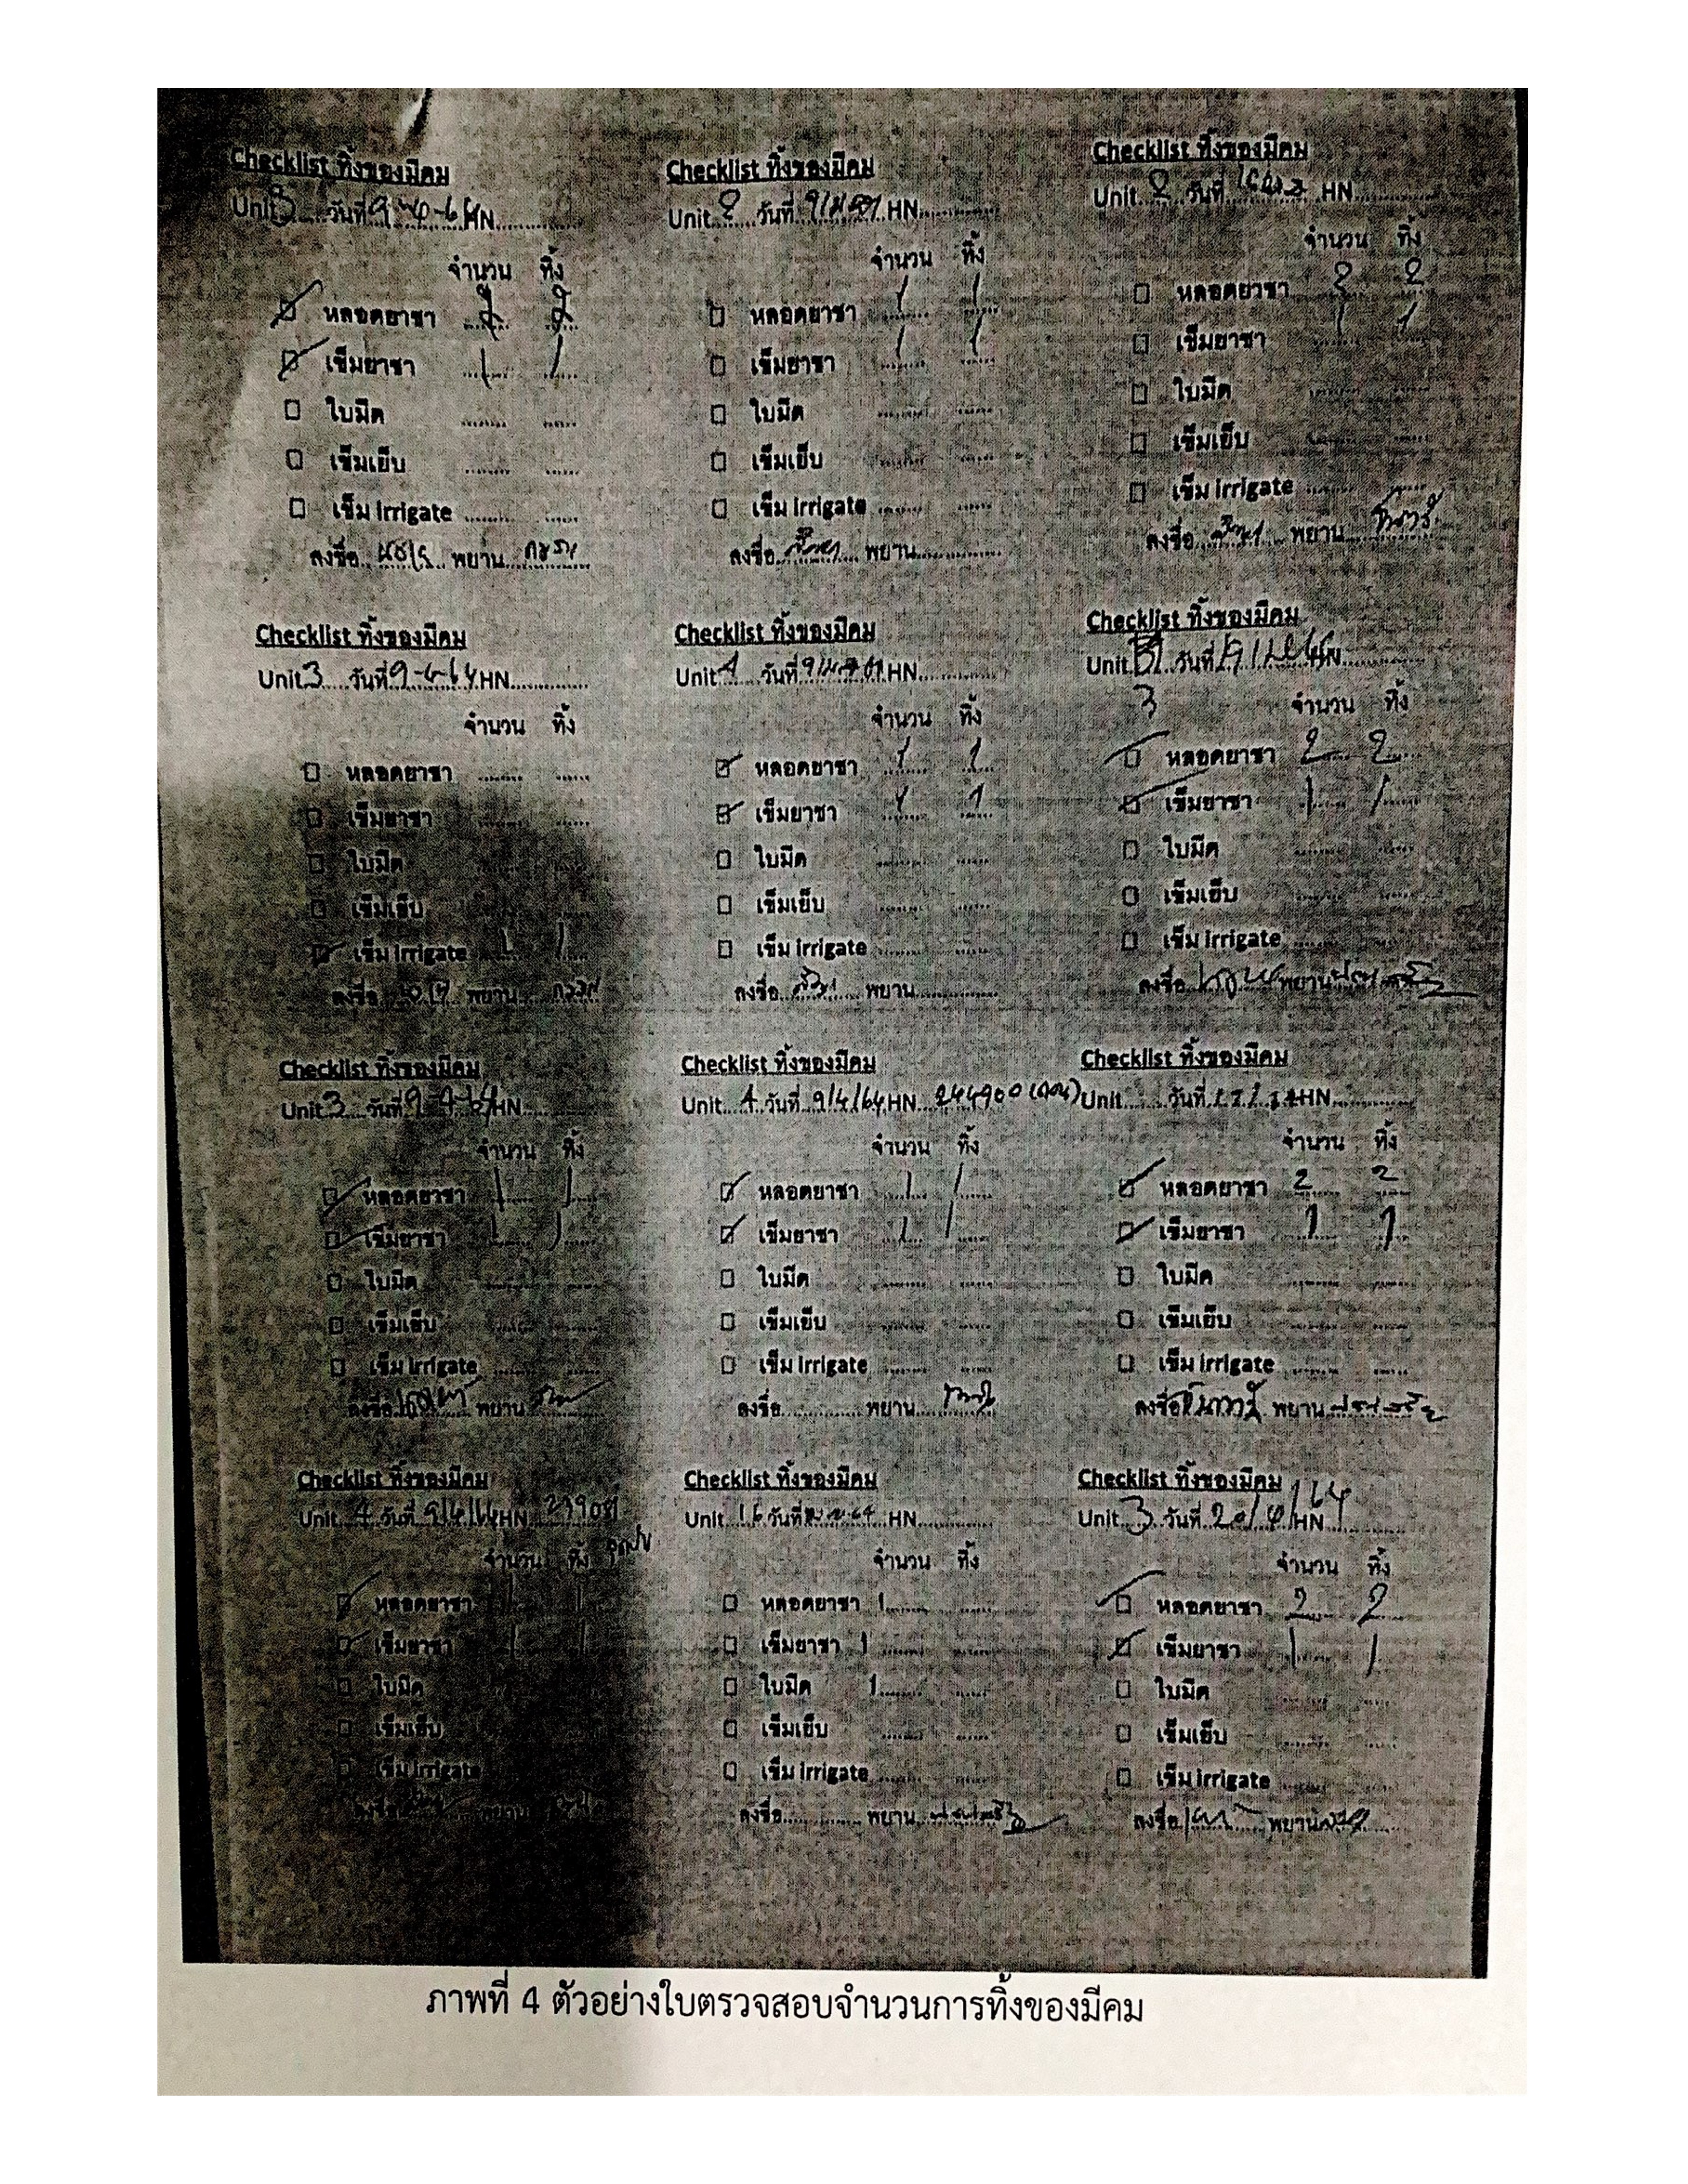 Checklist ทิ้งของมีคม
Unit 3 วันที่ 9-4-64 HN
จำนวน ทิ้ง
หลอดยาชา 2 2
เข็มยาชา 1 1
ใบมีด
เข็มเย็บ
เข็ม irrigate
ลงชื่อ พยาน
Checklist ทิ้งของมีคม
Unit 2 วันที่ HN
จำนวน ทิ้ง
หลอดยาชา 1 1
เข็มยาชา 1 1
ใบมีด
เข็มเย็บ
เข็ม irrigate
ลงชื่อ พยาน
Checklist ทิ้งของมีคม
Unit 2 วันที่ HN
จำนวน ทิ้ง
หลอดยาชา 2 2
เข็มยาชา 1 1
ใบมีด
เข็มเย็บ
เข็ม irrigate
ลงชื่อ พยาน
Checklist ทิ้งของมีคม
Unit 3 วันที่ 9-4-64 HN
จำนวน ทิ้ง
หลอดยาชา
เข็มยาชา
ใบมีด
เข็มเย็บ
เข็ม irrigate 1 1
ลงชื่อ พยาน
Checklist ทิ้งของมีคม
Unit 4 วันที่ HN
จำนวน ทิ้ง
หลอดยาชา 1 1
เข็มยาชา 1 1
ใบมีด
เข็มเย็บ
เข็ม irrigate
ลงชื่อ พยาน
Checklist ทิ้งของมีคม
Unit วันที่ HN
3
จำนวน ทิ้ง
หลอดยาชา 2 2
เข็มยาชา 1 1
ใบมีด
เข็มเย็บ
เข็ม irrigate
ลงชื่อ พยาน
Checklist ทิ้งของมีคม
Unit 3 วันที่ 9-4-64 HN
จำนวน ทิ้ง
หลอดยาชา 1 1
เข็มยาชา 1 1
ใบมีด
เข็มเย็บ
เข็ม irrigate
ลงชื่อ พยาน
Checklist ทิ้งของมีคม
Unit 4 วันที่ 9/4/64 HN 244900
จำนวน ทิ้ง
หลอดยาชา 1 1
เข็มยาชา 1 1
ใบมีด
เข็มเย็บ
เข็ม irrigate
ลงชื่อ พยาน
Checklist ทิ้งของมีคม
Unit วันที่ HN
จำนวน ทิ้ง
หลอดยาชา 2 2
เข็มยาชา 1 1
ใบมีด
เข็มเย็บ
เข็ม irrigate
ลงชื่อ พยาน
Checklist ทิ้งของมีคม
Unit 4 วันที่ 9/4/64 HN
จำนวน ทิ้ง
หลอดยาชา 1 1
เข็มยาชา 1 1
ใบมีด
เข็มเย็บ
เข็ม irrigate
ลงชื่อ พยาน
Checklist ทิ้งของมีคม
Unit 16 วันที่ HN
จำนวน ทิ้ง
หลอดยาชา 1
เข็มยาชา 1
ใบมีด 1
เข็มเย็บ
เข็ม irrigate
ลงชื่อ พยาน
Checklist ทิ้งของมีคม
Unit 3 วันที่ 20/4/64 HN
จำนวน ทิ้ง
หลอดยาชา 2 2
เข็มยาชา 1 1
ใบมีด
เข็มเย็บ
เข็ม irrigate
ลงชื่อ พยาน
ภาพที่ 4 ตัวอย่างใบตรวจสอบจำนวนการทิ้งของมีคม